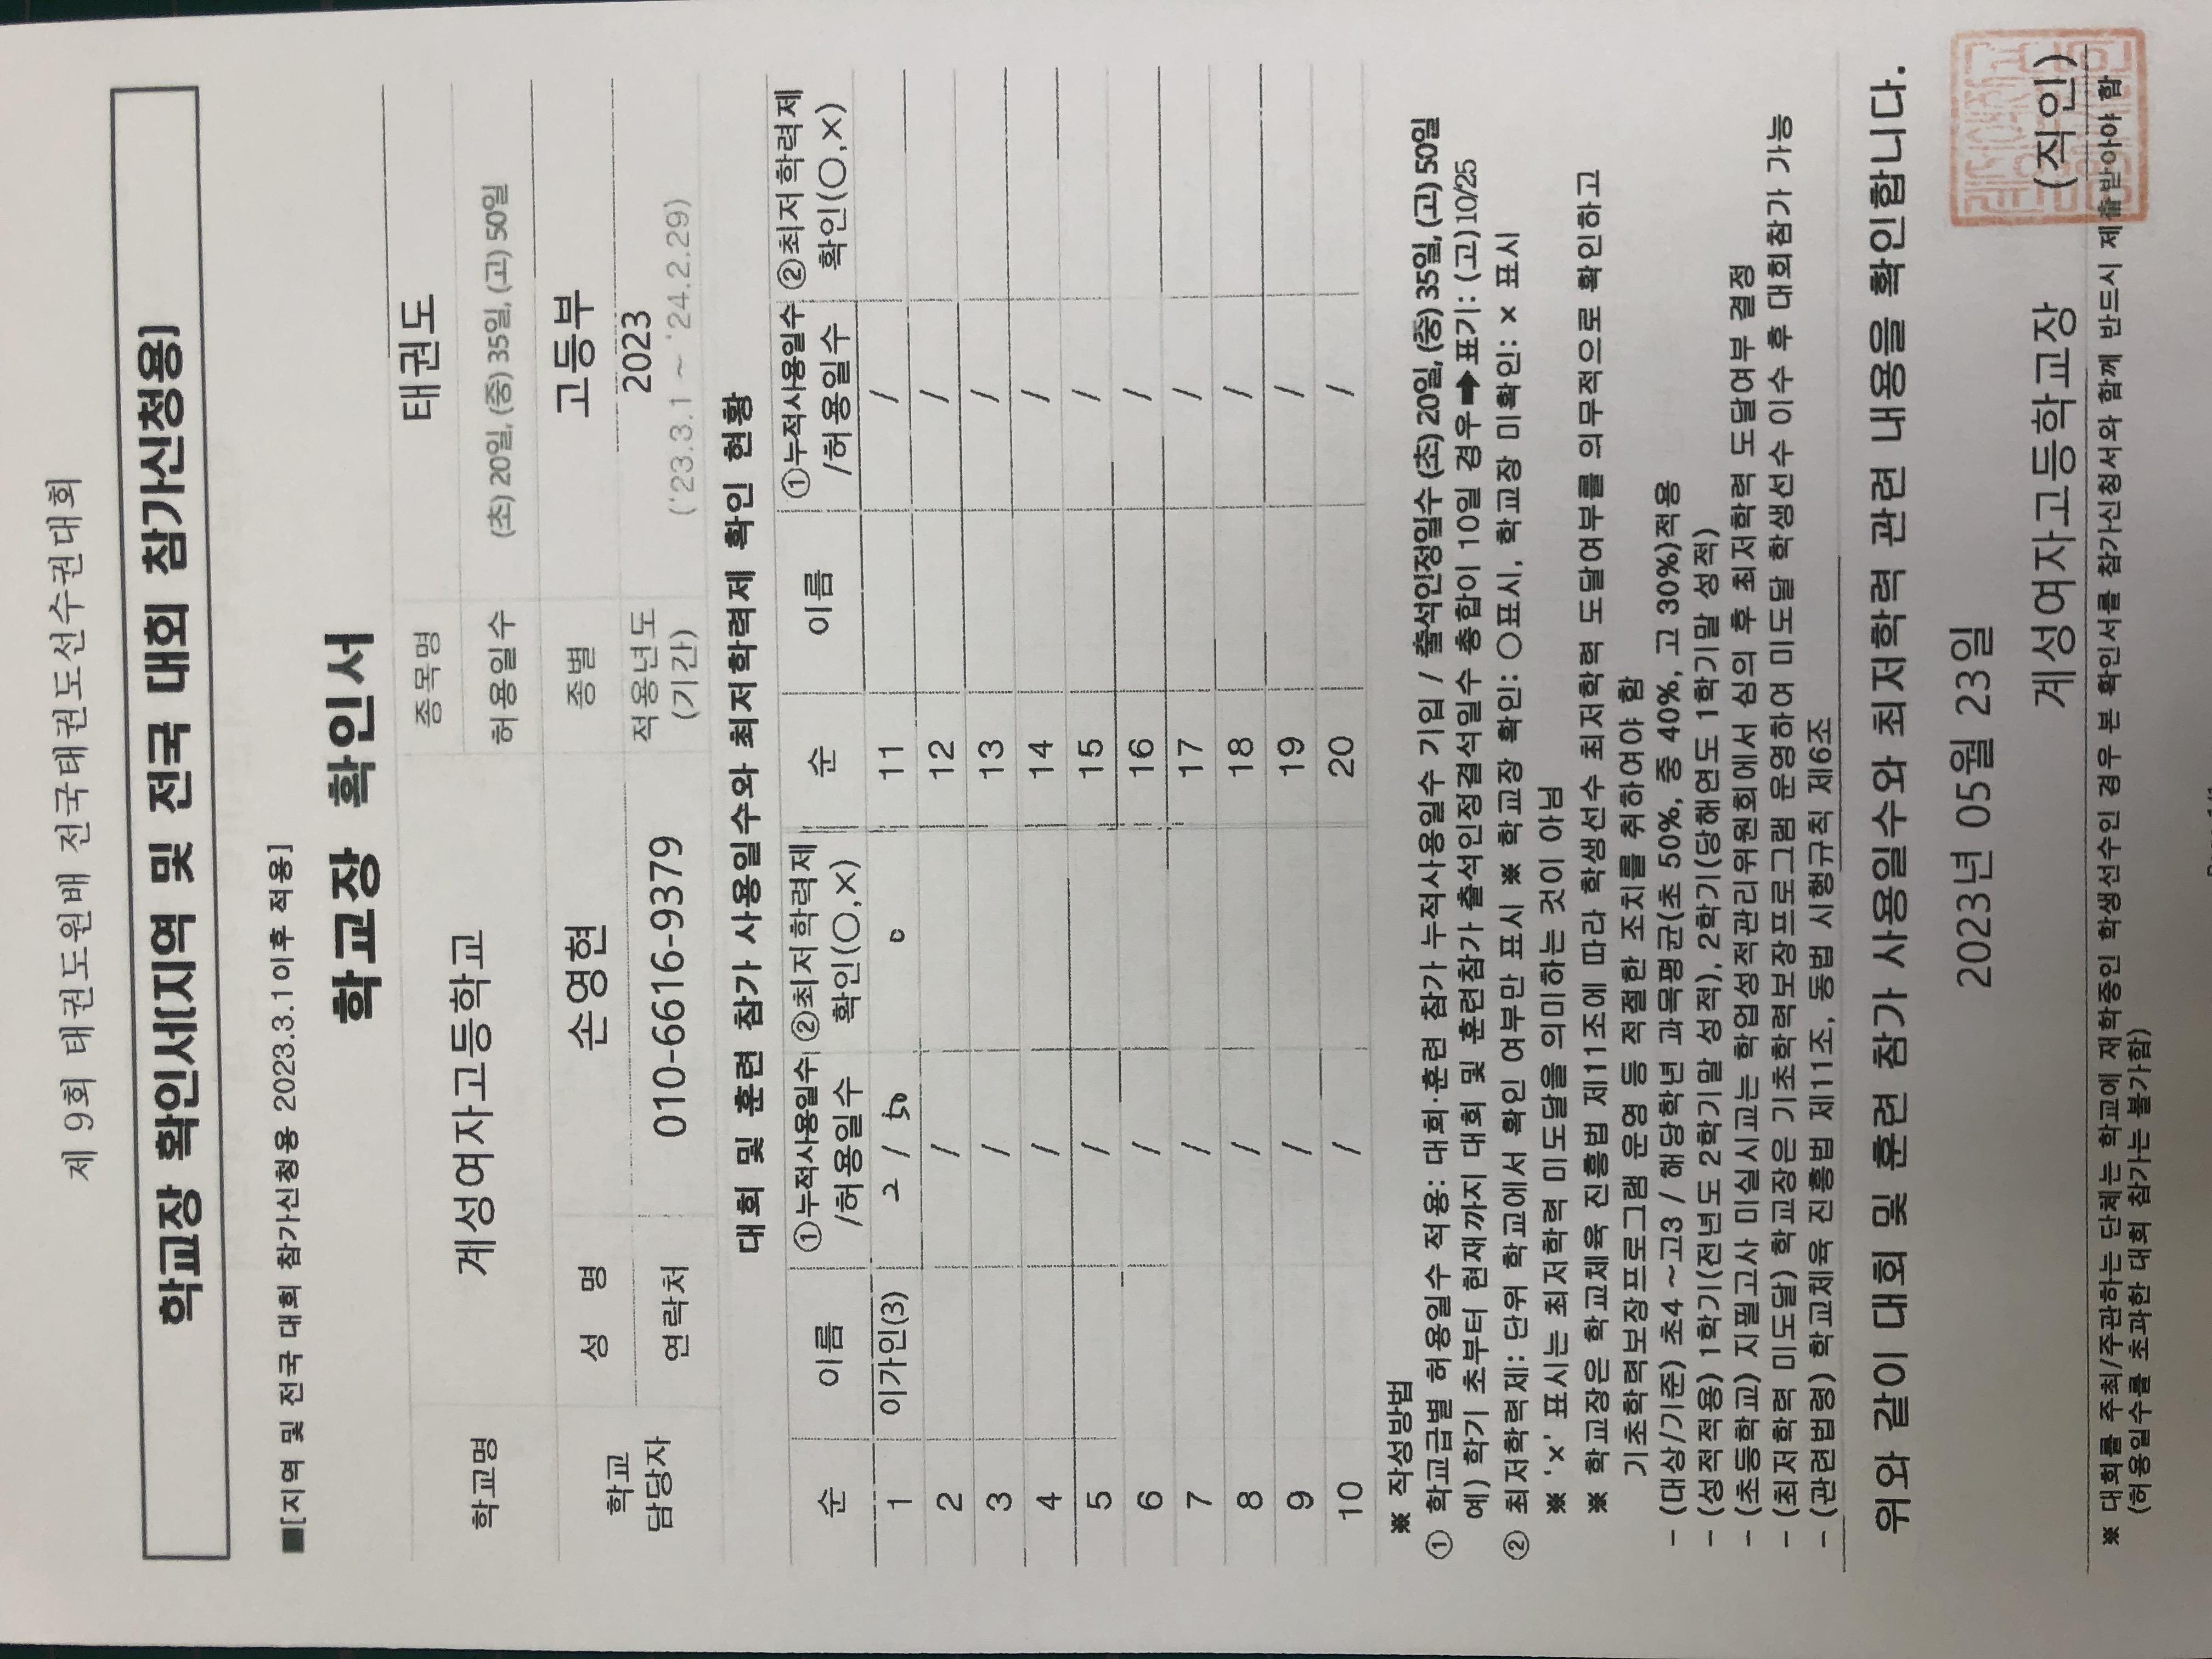 제 9회 태권도원배 전국태권도선수권대회
학교장 확인서[지역 및 전국 대회 참가신청용]
■[지역 및 전국 대회 참가신청용 2023.3.1이후 적용]
학교장 확인서
학교명 계성여자고등학교 종목명 태권도
허용일수 (초) 20일, (중) 35일, (고) 50일
학교 담당자 성 명 손영현 종별 고등부
연락처 010-6616-9379 적용년도 (기간) 2023 ('23.3.1 ~ '24.2.29)
대회 및 훈련 참가 사용일수와 최저학력제 확인 현황
순 이름 ①누적사용일수 /허용일수 ②최저학력제 확인(○,×) 순 이름 ①누적사용일수 /허용일수 ②최저학력제 확인(○,×)
1 이가인(3) 2 / 50 o 11 /
2 / 12 /
3 / 13 /
4 / 14 /
5 / 15 /
6 / 16 /
7 / 17 /
8 / 18 /
9 / 19 /
10 / 20 /
※ 작성방법
① 학교급별 허용일수 적용: 대회·훈련 참가 누적사용일수 기입 / 출석인정일수 (초) 20일, (중) 35일, (고) 50일
예) 학기 초부터 현재까지 대회 및 훈련참가 출석인정결석일수 총합이 10일 경우 ➡ 표기: (고) 10/25
② 최저학력제: 단위 학교에서 확인 여부만 표시 ※ 학교장 확인: ○표시, 학교장 미확인: × 표시
※ '×' 표시는 최저학력 미도달을 의미하는 것이 아님
※ 학교장은 학교체육 진흥법 제11조에 따라 학생선수 최저학력 도달여부를 의무적으로 확인하고
기초학력보장프로그램 운영 등 적절한 조치를 취하여야 함
- (대상/기준) 초4 ~ 고3 / 해당학년 과목평균(초 50%, 중 40%, 고 30%)적용
- (성적적용) 1학기(전년도 2학기말 성적), 2학기(당해연도 1학기말 성적)
- (초등학교) 지필고사 미실시교는 학업성적관리위원회에서 심의 후 최저학력 도달여부 결정
- (최저학력 미도달) 학교장은 기초학력보장프로그램 운영하여 미도달 학생선수 이수 후 대회참가 가능
- (관련법령) 학교체육 진흥법 제11조, 동법 시행규칙 제6조
위와 같이 대회 및 훈련 참가 사용일수와 최저학력 관련 내용을 확인합니다.
2023년 05월 23일
계성여자고등학교장 (직인)
※ 대회를 주최/주관하는 단체는 학교에 재학중인 학생선수인 경우 본 확인서를 참가신청서와 함께 반드시 제출받아야 함
(허용일수를 초과한 대회 참가는 불가함)